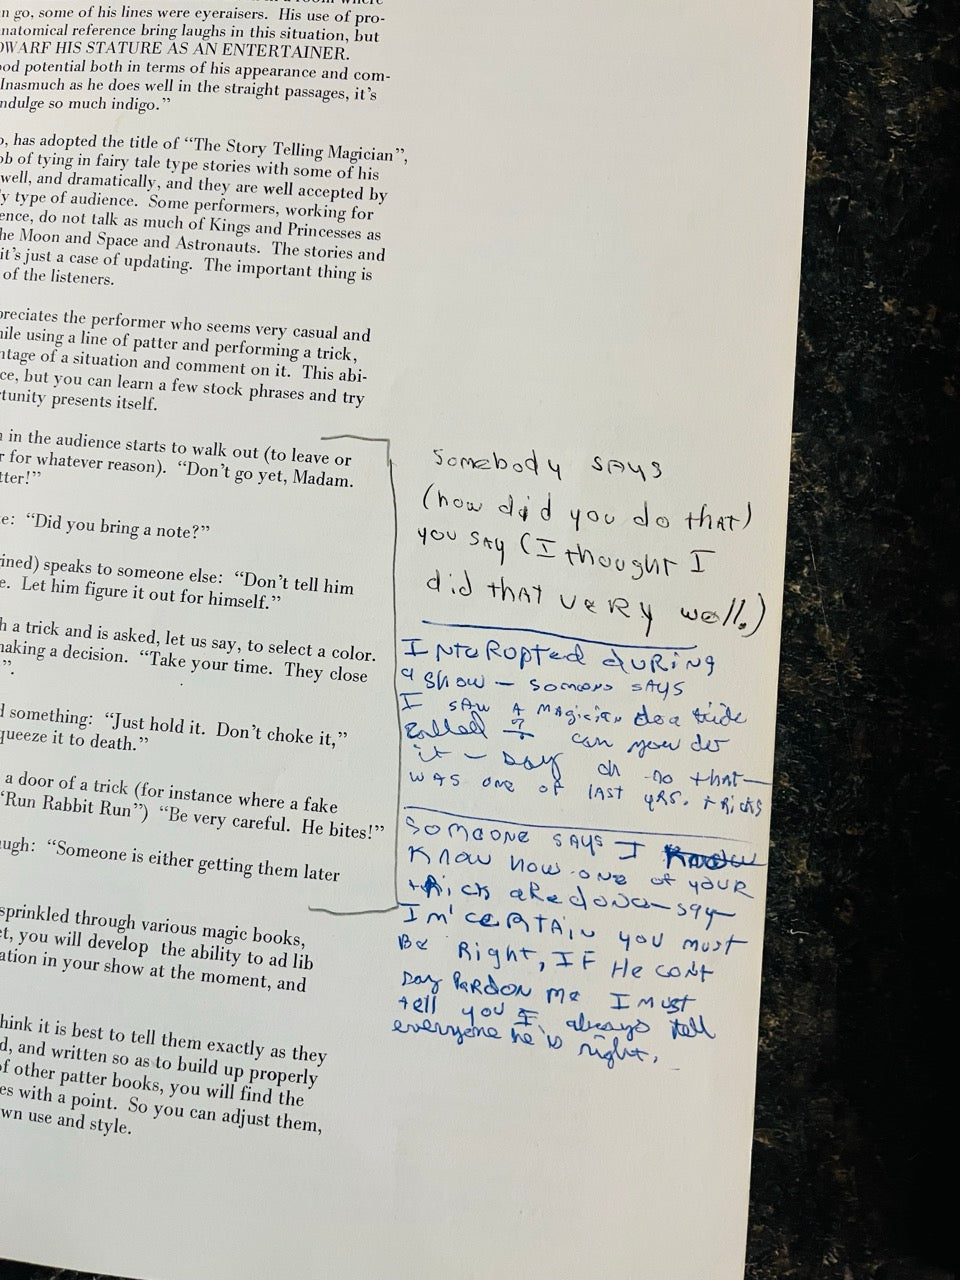 n go, some of his lines were eyeraisers. His use of pro-
natomical reference bring laughs in this situation, but
DWARF HIS STATURE AS AN ENTERTAINER.
ood potential both in terms of his appearance and com-
Inasmuch as he does well in the straight passages, it's
ndulge so much indigo."
o, has adopted the title of "The Story Telling Magician",
ob of tying in fairy tale type stories with some of his
well, and dramatically, and they are well accepted by
y type of audience. Some performers, working for
ence, do not talk as much of Kings and Princesses as
he Moon and Space and Astronauts. The stories and
it's just a case of updating. The important thing is
of the listeners.
preciates the performer who seems very casual and
hile using a line of patter and performing a trick,
ntage of a situation and comment on it. This abi-
ce, but you can learn a few stock phrases and try
rtunity presents itself.
n in the audience starts to walk out (to leave or
r for whatever reason). "Don't go yet, Madam.
tter!"
e: "Did you bring a note?"
ined) speaks to someone else: "Don't tell him
e. Let him figure it out for himself."
h a trick and is asked, let us say, to select a color.
naking a decision. "Take your time. They close
".
d something: "Just hold it. Don't choke it,"
queeze it to death."
a door of a trick (for instance where a fake
"Run Rabbit Run") "Be very careful. He bites!"
ugh: "Someone is either getting them later
sprinkled through various magic books,
et, you will develop the ability to ad lib
ation in your show at the moment, and
hink it is best to tell them exactly as they
d, and written so as to build up properly
of other patter books, you will find the
es with a point. So you can adjust them,
wn use and style.
Somebody SAYS
(how did you do tHAT)
you SAY (I thought I
did tHAT VeRy well.)
InteRopted duRing
a show - someons sAYS
I saw A magician do a trick
called ? can you do
it - say oh no that-
was one of last yrs. tricks
Someone says I Know
Know how one of youR
tRicks aRe done-say-
Im' ceRTAin you must
Be Right, IF He cont
say PaRdon me I must
tell you I always tell
everyone he is right.